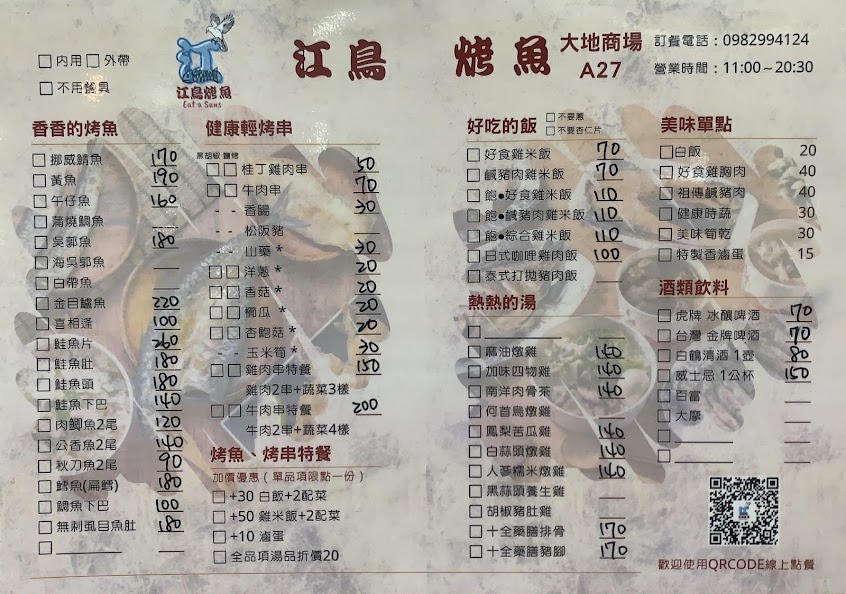 □內用 □外帶
□不用餐具
江鳥烤魚
Eat a Suns
江鳥 烤魚
大地商場
A27
訂餐電話：0982994124
營業時間：11:00~20:30
香香的烤魚
□挪威鯖魚 170
□黃魚 190
□午仔魚 160
□蒲燒鯛魚 —
□吳郭魚 180
□海吳郭魚 —
□白帶魚 —
□金目鱸魚 220
□喜相逢 100
□鮭魚片 260
□鮭魚肚 180
□鮭魚頭 180
□鮭魚下巴 140
□肉鯽魚2尾 120
□公香魚2尾 140
□秋刀魚2尾 90
□鱈魚(扁鱈) 180
□鯛魚下巴 100
□無刺虱目魚肚 180
□
健康輕烤串
黑胡椒 鹽烤
□□桂丁雞肉串 50
□□牛肉串 70
- - 香腸 30
- - 松阪豬 —
- - 山藥 * 30
□□洋蔥 * 20
□□香菇 * 20
□□櫛瓜 * 20
□□杏鮑菇 * 20
- 玉米筍 * 30
□□雞肉串特餐 150
雞肉2串+蔬菜3樣
□□牛肉串特餐 200
牛肉2串+蔬菜4樣
烤魚、烤串特餐
加價優惠（單品項限點一份）
□+30 白飯+2配菜
□+50 雞米飯+2配菜
□+10 滷蛋
□全品項湯品折價20
好吃的飯
□不要蔥
□不要杏仁片
□好食雞米飯 70
□鹹豬肉雞米飯 70
□飽●好食雞米飯 110
□飽●鹹豬肉雞米飯 110
□飽●綜合雞米飯 110
□日式咖哩雞肉飯 100
□泰式打拋豬肉飯 —
熱熱的湯
□
□麻油燉雞 140
□加味四物雞 140
□南洋肉骨茶 140
□何首烏燉雞 —
□鳳梨苦瓜雞 140
□白蒜頭燉雞 140
□人蔘糯米燉雞 140
□黑蒜頭養生雞 —
□胡椒豬肚雞 —
□十全藥膳排骨 170
□十全藥膳豬腳 170
美味單點
□白飯 20
□好食雞胸肉 40
□祖傳鹹豬肉 40
□健康時蔬 30
□美味筍乾 30
□特製香滷蛋 15
酒類飲料
□虎牌 冰釀啤酒 70
□台灣 金牌啤酒 70
□白鶴清酒 1壺 80
□威士忌 1公杯 150
□百富 —
□大摩 —
□
□
歡迎使用QRCODE線上點餐